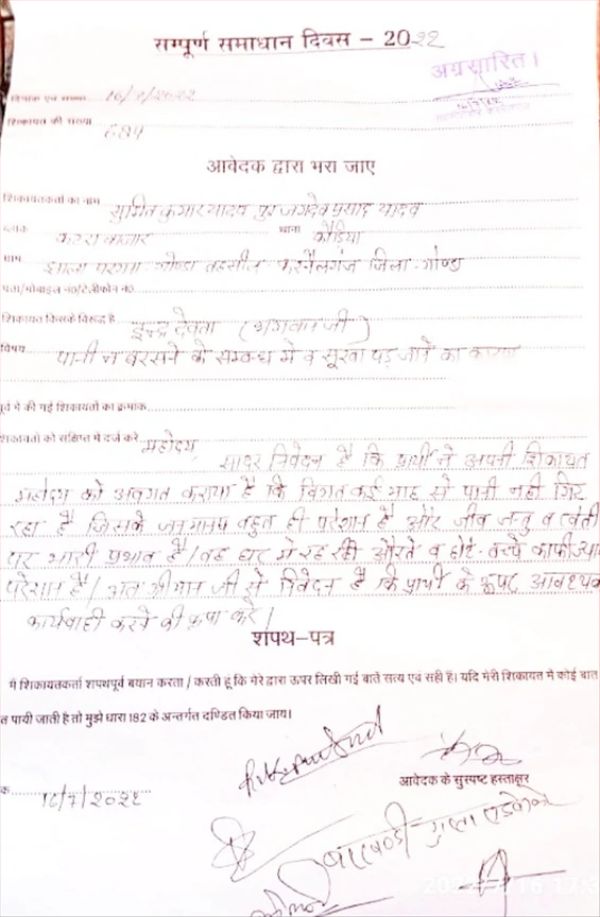 सम्पूर्ण समाधान दिवस – 2022
अग्रसारित।
दिनांक एवं समय 16/7/2022
शिकायत की संख्या
आवेदक द्वारा भरा जाए
शिकायतकर्ता का नाम सुमित कुमार यादव पुत्र जगदेव प्रसाद यादव
ब्लाक कटरा बाजार थाना कौडिया
ग्राम झाला परगना गोण्डा तहसील करनैलगंज जिला-गोण्डा
पता/मोबाइल न0/टेलीफोन न0
शिकायत किसके विरूद्ध है इन्द्र देवता (भगवान जी)
विषय पानी न बरसने के सम्बन्ध में व सूखा पड़ जाने का कारण
पूर्व मे की गई शिकायतों का क्रमांक
शिकायतों को संक्षिप्त में दर्ज करे महोदय,
सादर निवेदन है कि प्रार्थी ने अपनी शिकायत
महोदय को अवगत कराया है कि विगत कई माह से पानी नही गिर
रहा है जिसके जनमानष बहुत ही परेशान है और जीव जन्तु व खेती
पर भारी प्रभाव है/ घर में रह रही औरते व छोटे-बच्चे काफी
परेशान है/ अतः श्रीमान जी से निवेदन है कि प्रार्थी के आवश्यक
कार्यवाही करने की कृपा करे/
शपथ–पत्र
मै शिकायतकर्ता शपथपूर्व बयान करता / करती हू कि मेरे द्वारा ऊपर लिखी गई बाते सत्य एवं सही है। यदि मेरी शिकायत मे कोई बात
त पायी जाती है तो मुझे धारा 182 के अन्तर्गत दण्डित किया जाय।
आवेदक के सुस्पष्ट हस्ताक्षर
क 16/7/2022
गुप्ता एडवोकेट